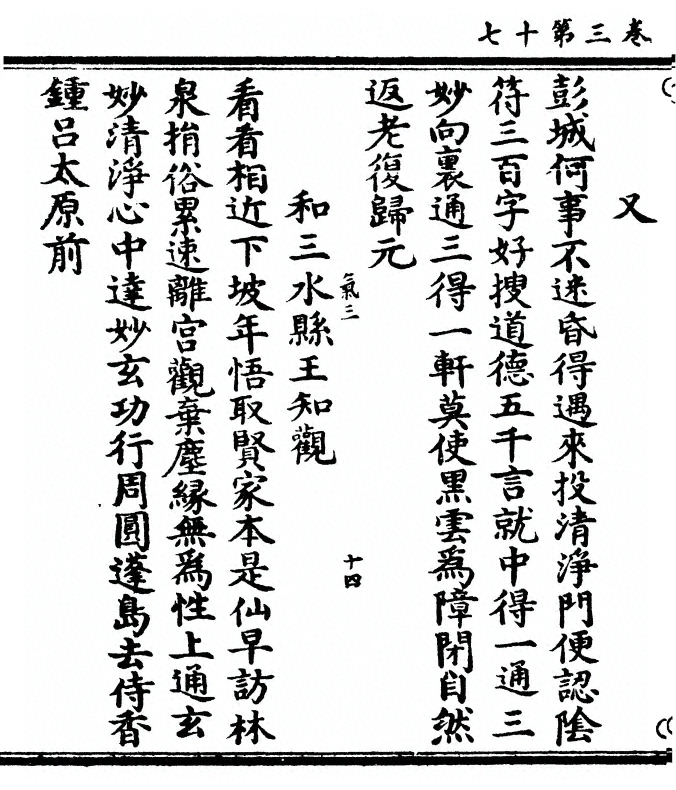 卷三第十七
又
彭城何事不迷昏得遇來投清淨門便認陰
符三百字好搜道德五千言就中得一通三
妙向裏通三得一軒莫使黑雲為障閉自然
返老復歸元
氣三
十四
和三水縣王知觀
看看相近下坡年悟取賢家本是仙早訪林
泉捐俗累速離宮觀棄塵緣無為性上通玄
妙清淨心中達妙玄功行周圓蓬島去侍香
鍾呂太原前